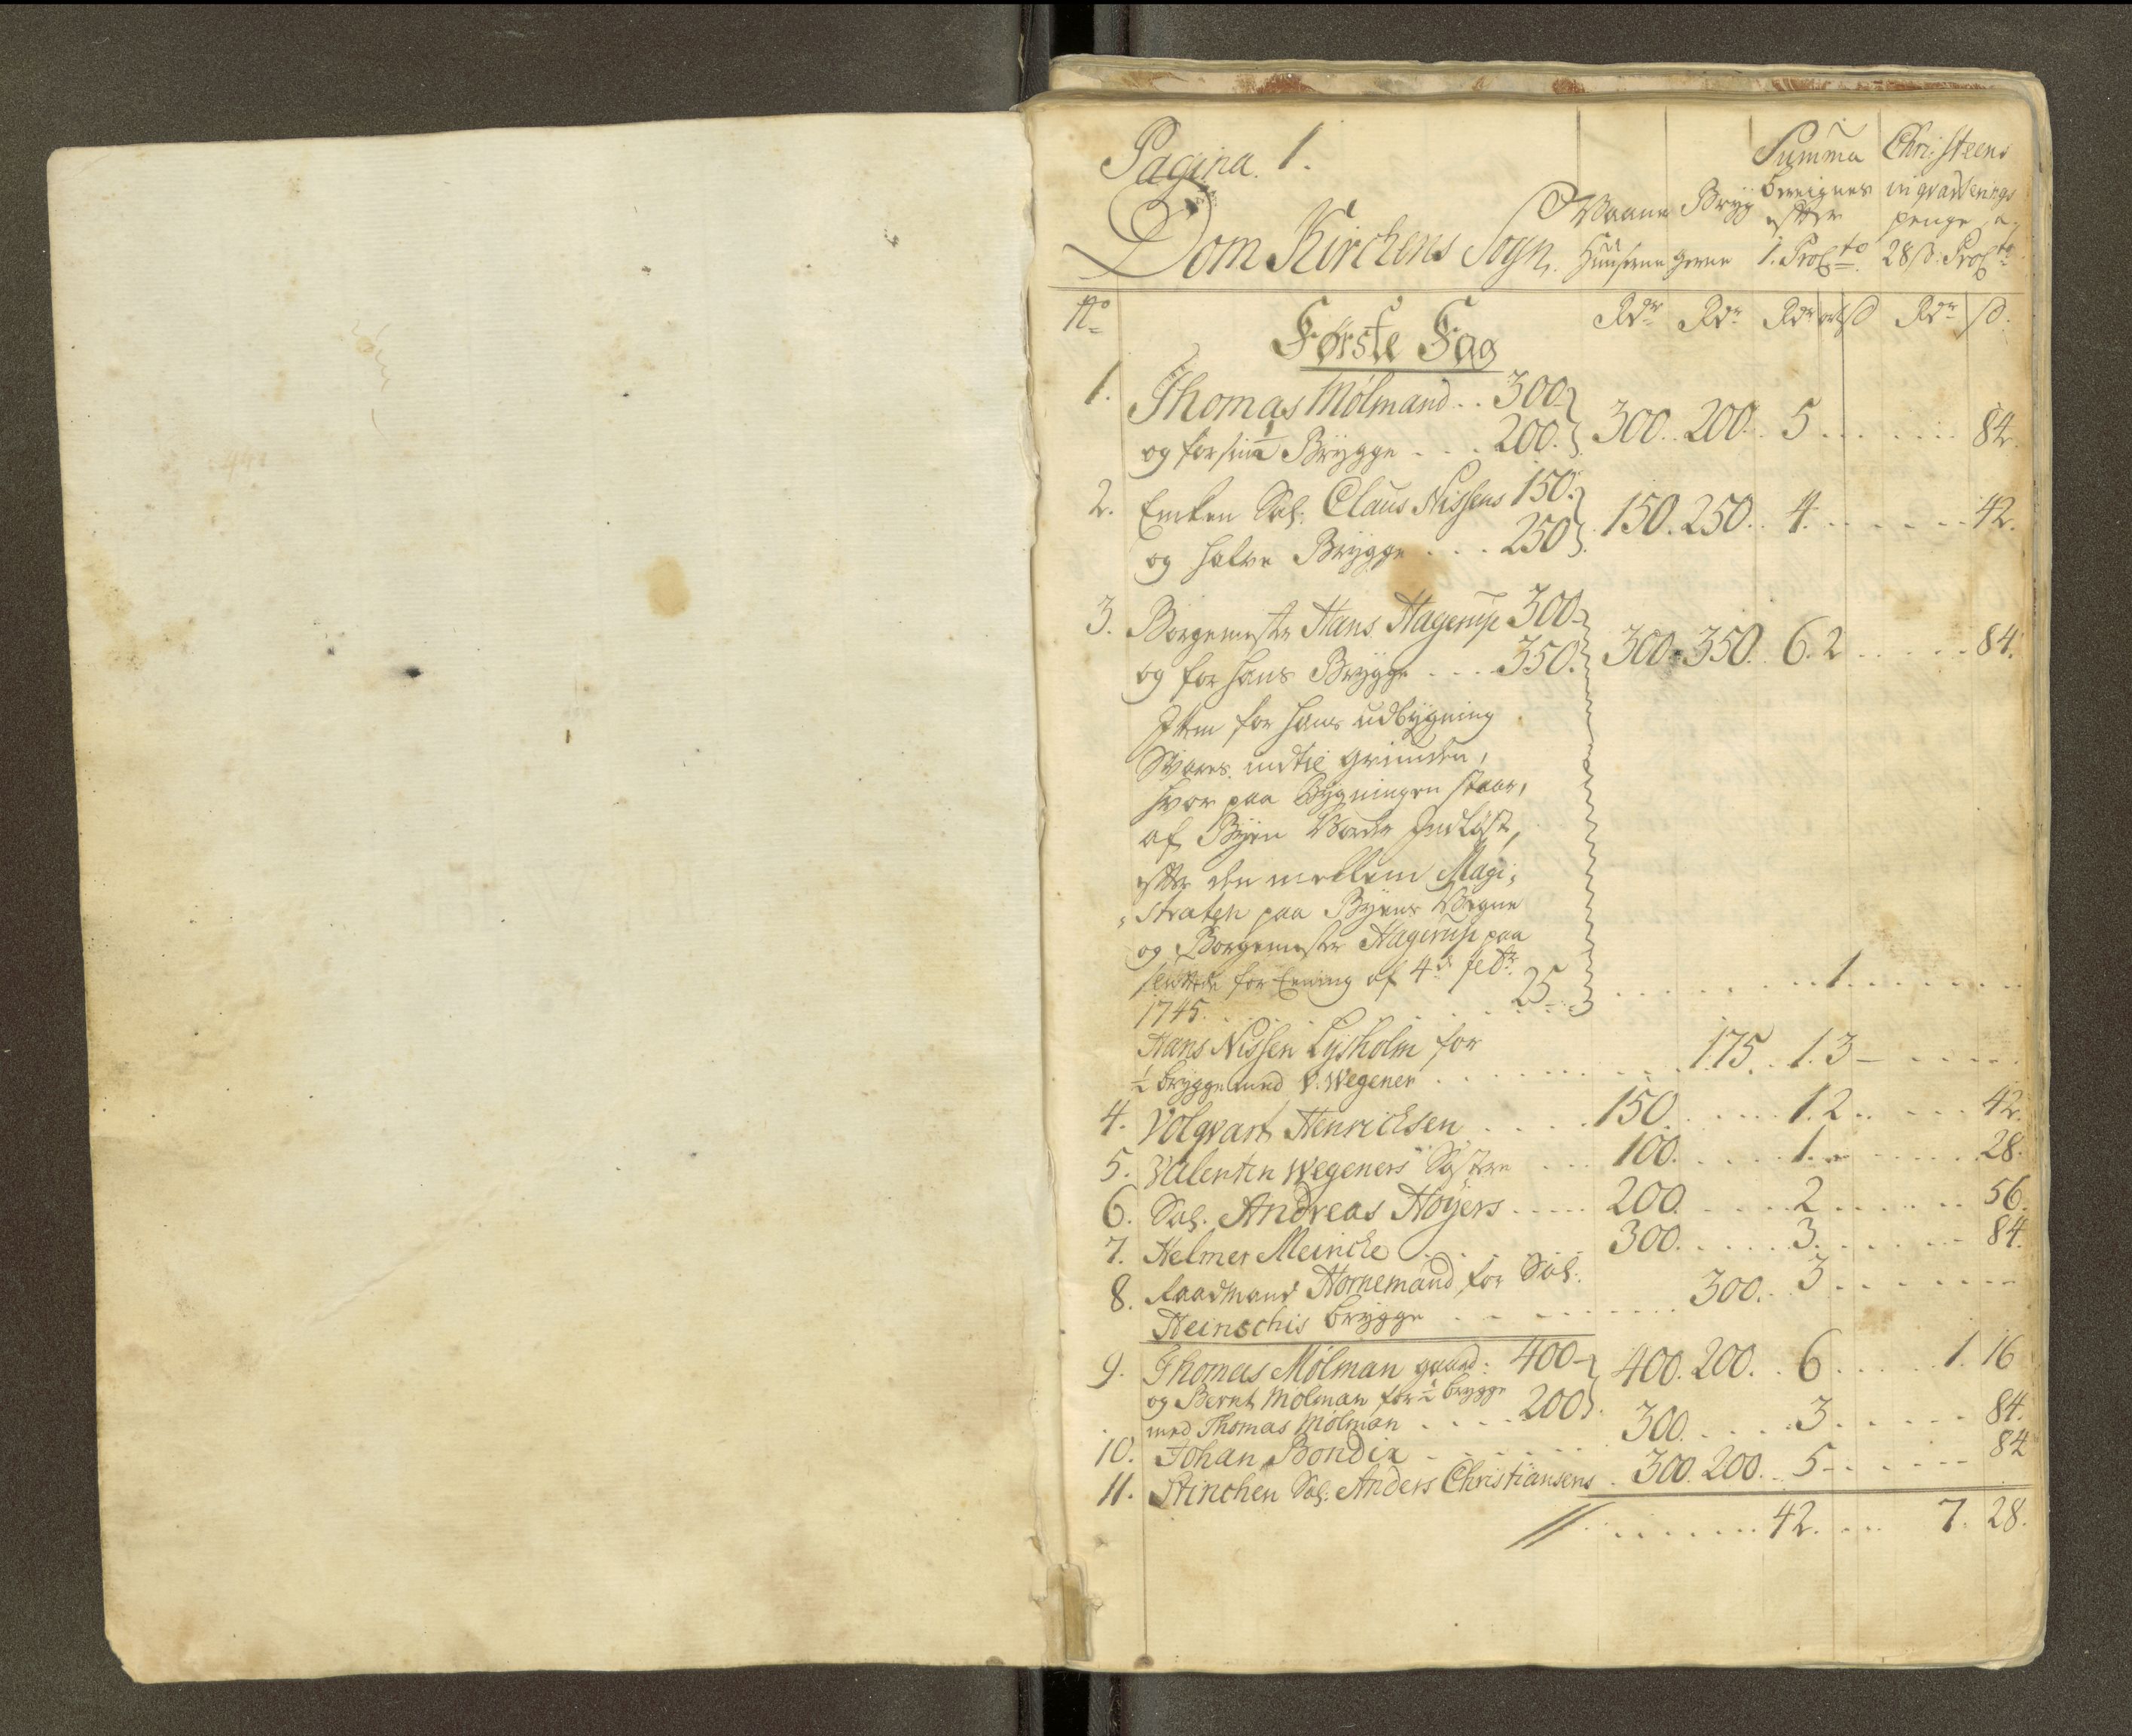 Pagina. 1.
Dom Kirchens Sogn.
Vaane Huuserne
Bryggerne
Summa Bereignes efter 1. Procto
Christeens inqvarterings penge a 28 s. Procto
No
Rdr Rdr Rdr ort s Rdr s.
Første Fag
1. Thomas Mølmand .. 300
og for sin ½ Brygge . . . 200. 300. 200. 5 . . . . . . 84.
2. Enken Sal. Claus Nissens 150.
og halve Brygge . . . 250 150. 250. 4. . . . . . 42.
3. Borgemester Hans Hagerup 300
og for hans Brygge . . . 350. 300. 350. 6. 2 . . . . . 84.
Item for hans udbygning
Svares indtil grunden,
hvor paa bygningen staar,
af Byen Vorder Indløst,
efter den mellem Magi,
straten paa Byens Vegne
og Borgemester Hagerup paa
sluttede forEening af 4de febr.
1745. . . . . . . . . 25 . . . . . . . 1. . . . . . .
Hans Nissen Lysholm for
½ brygge med V. Wegener . . . . . . . 175. 1. 3 - . . . .
4. Volqvart Henrichsen . . . . 150. . . . . 1. 2 . . . . . 42.
5. Valentin Wegeners Søstre . . . 100. . . . . 1. . . . . . 28.
6. Sal. Andreas Høyers . . . . . 200. . . . . 2 . . . . . . 56.
7. Helmer Meincke . . . . . . 300. . . . . 3. . . . . . 84.
8. Raadmand Hornemand for Sal.
Heinschis brygge . . . . . . . . 300. . 3 . . . . . . .
9. Thomas Mølman gaard: 400
og Bernt Mølman for ½ brygge
med Thomas Mølman . . . . 200 400. 200. . 6 . . . . 1. 16
10. Johan Bondix . . . . . . . 300. . . . . 3. . . . . . 84.
11. Stinchen Sal. Anders Christiansens . 300. 200. . 5 - . . . . . 84
. . . . . . . . 42. . . . 7. 28.